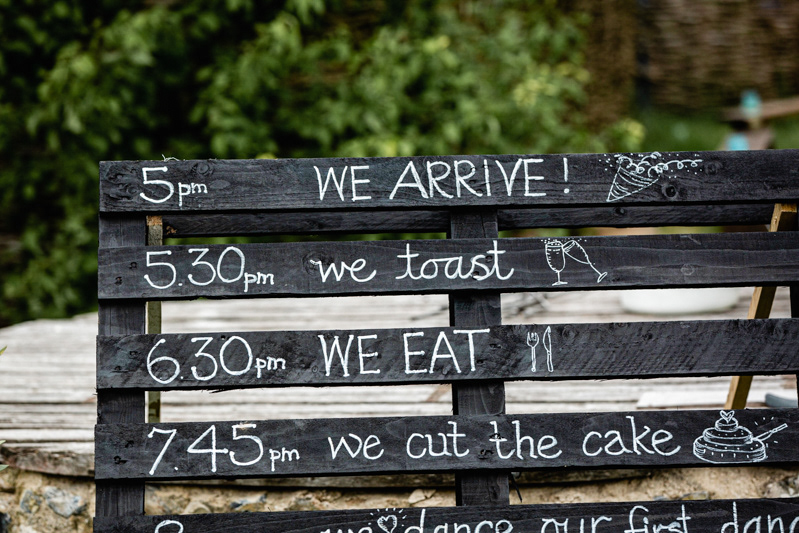 5pm WE ARRIVE!
5.30pm we toast
6.30pm WE EAT
7.45pm we cut the cake
dance our first